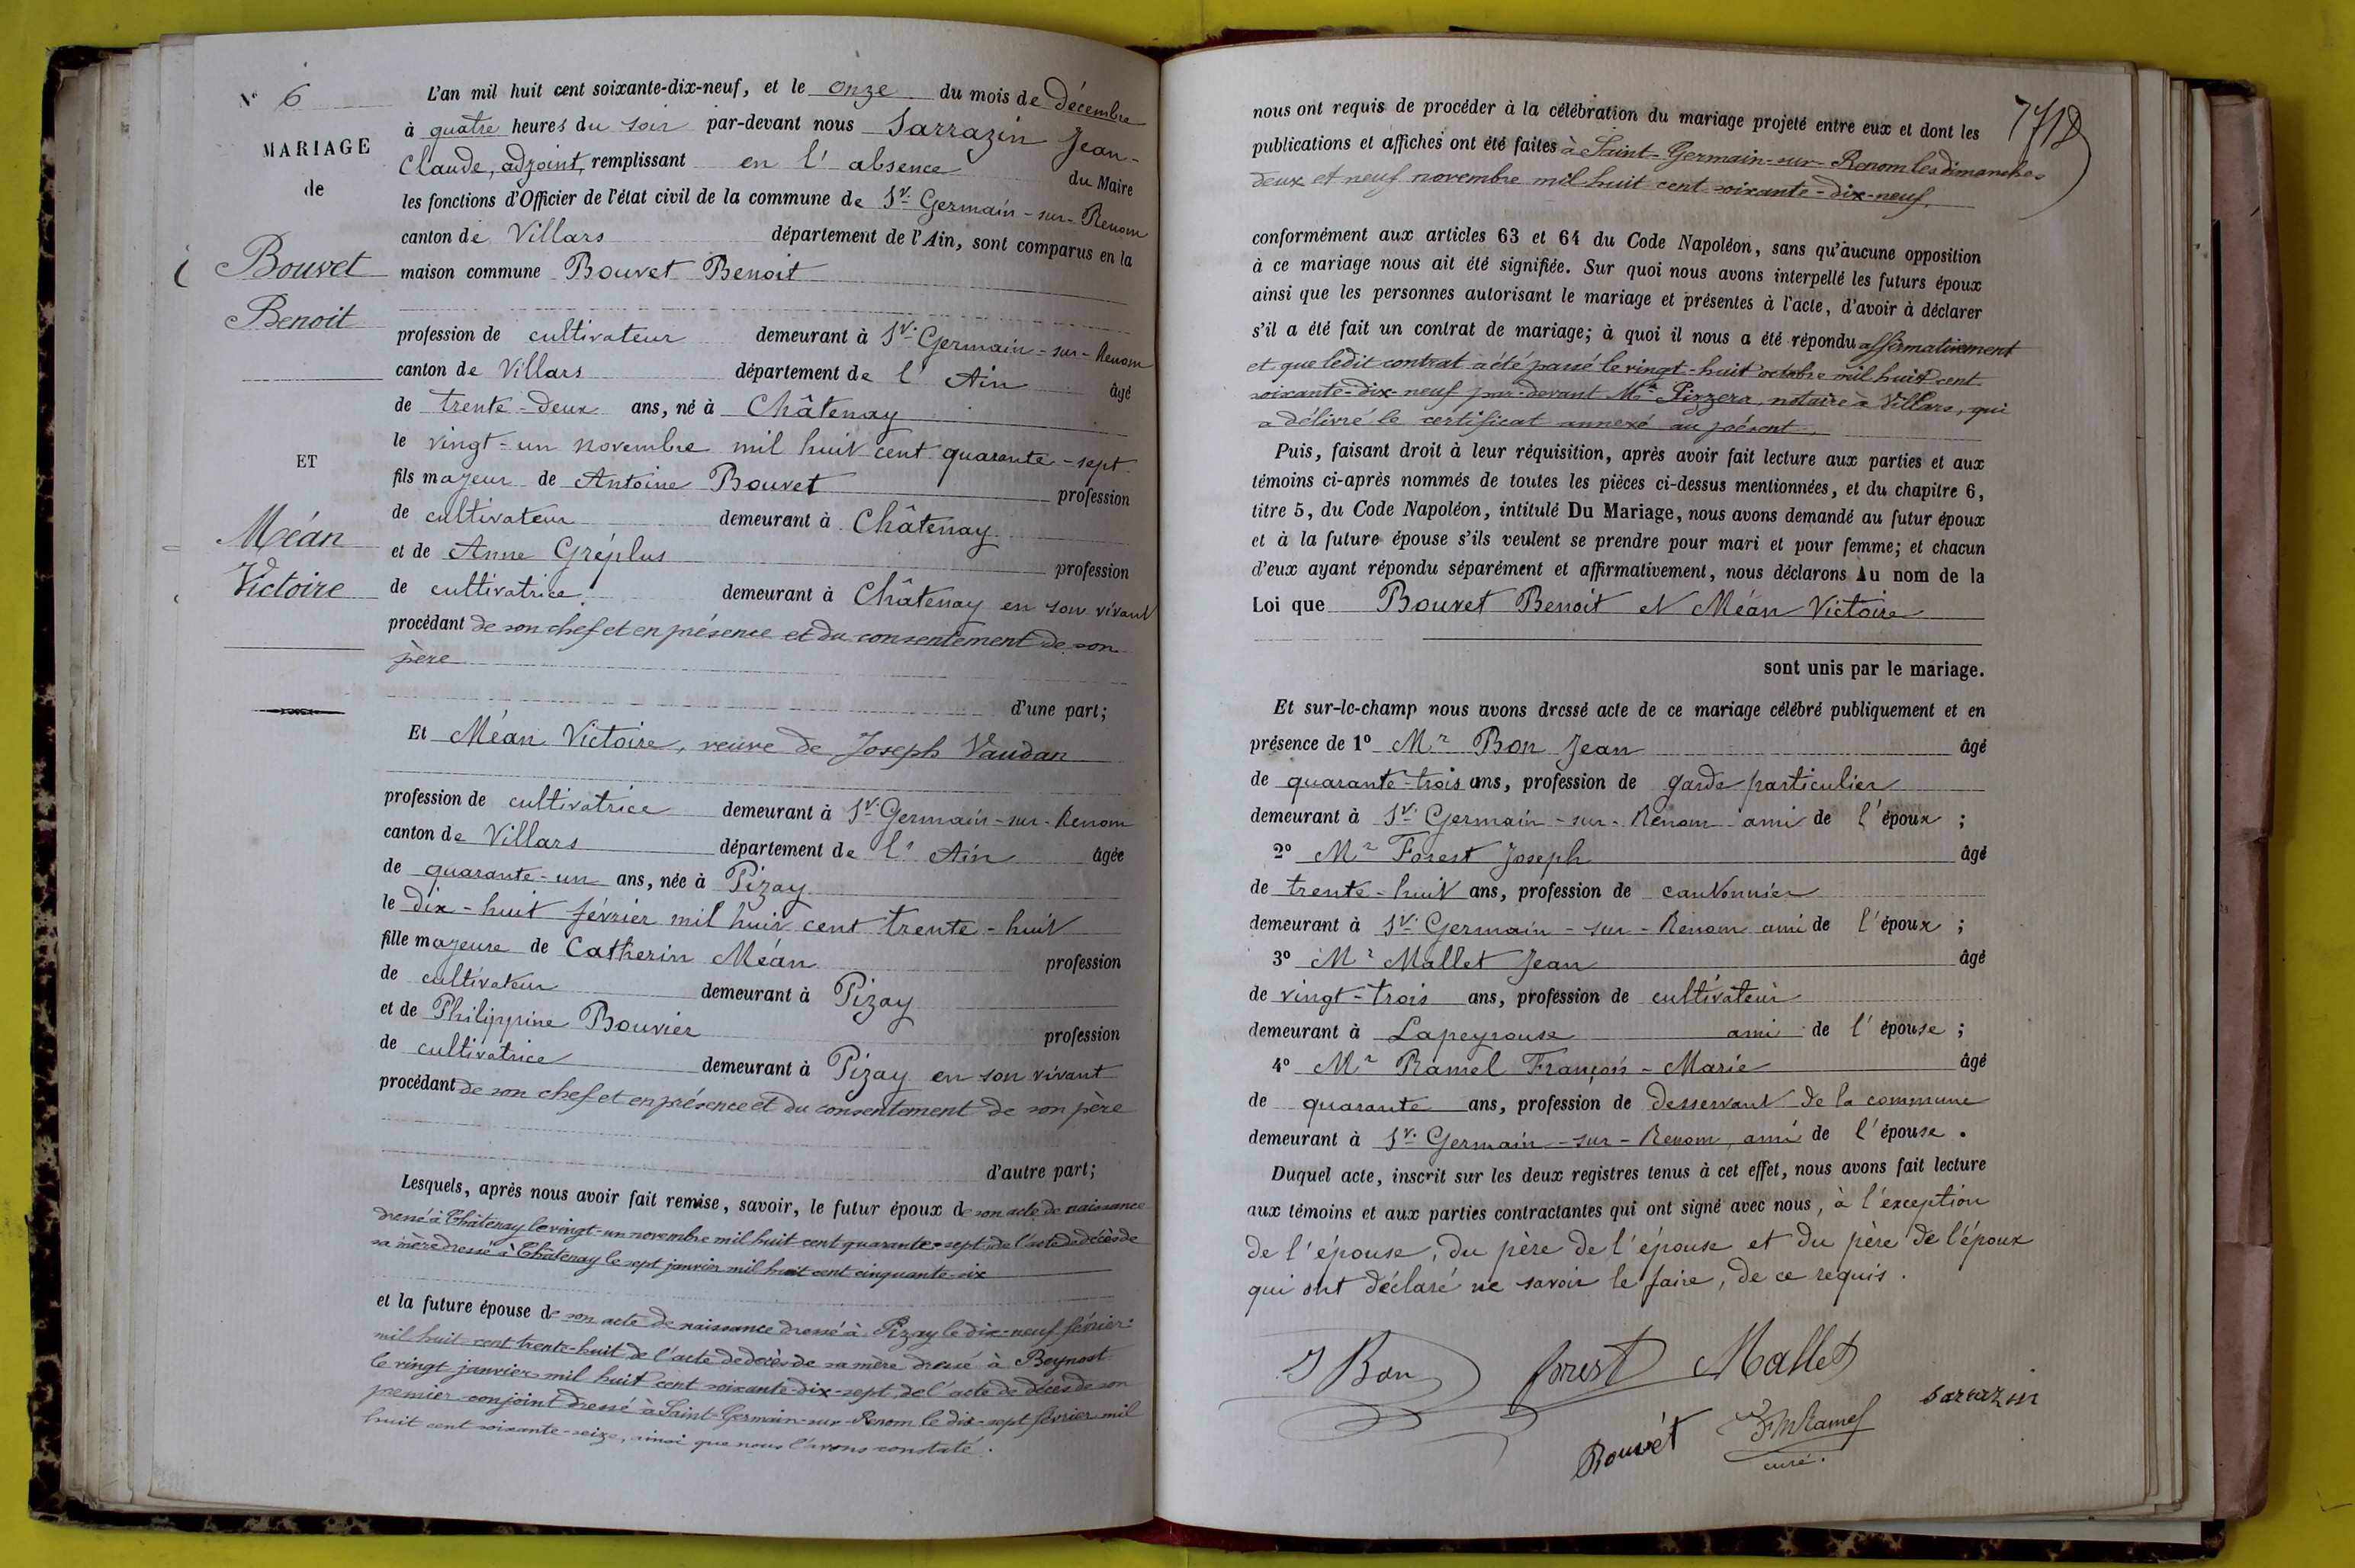 N° 6
MARIAGE
de
Bouvet
Benoit
ET
Méan
Victoire
L'an mil huit cent soixante-dix-neuf, et le onze du mois de décembre
à quatre heures du soir par-devant nous Sarrazin Jean-
Claude, adjoint, remplissant en l'absence du Maire
les fonctions d'Officier de l'état civil de la commune de St Germain-sur-Renom
canton de Villars département de l'Ain, sont comparus en la
maison commune Bouvet Benoit
profession de cultivateur demeurant à St Germain-sur-Renom
canton de Villars département de l'Ain âgé
de trente-deux ans, né à Châtenay
le vingt-un novembre mil huit cent quarante-sept
fils majeur de Antoine Bouvet profession
de cultivateur demeurant à Châtenay
et de Anne Gréplus profession
de cultivatrice demeurant à Châtenay en son vivant
procédant de son chef et en présence et du consentement de son
père
d'une part;
Et Méan Victoire, veuve de Joseph Vaudan
profession de cultivatrice demeurant à St Germain-sur-Renom
canton de Villars département de l'Ain âgée
de quarante-un ans, née à Pizay
le dix-huit février mil huit cent trente-huit
fille majeure de Catherin Méan profession
de cultivateur demeurant à Pizay
et de Philippine Bouvier profession
de cultivatrice demeurant à Pizay en son vivant
procédant de son chef et en présence et du consentement de son père
d'autre part;
Lesquels, après nous avoir fait remise, savoir, le futur époux de son acte de naissance
dressé à Châtenay le vingt-un novembre mil huit cent quarante-sept, de l'acte de décès de
sa mère dressé à Châtenay le sept janvier mil huit cent cinquante-six
et la future épouse de son acte de naissance dressé à Pizay le dix-neuf février
mil huit cent trente-huit de l'acte de décès de sa mère dressé à Beynost
le vingt janvier mil huit cent soixante-dix-sept, de l'acte de décès de son
premier conjoint dressé à Saint-Germain-sur-Renom le dix-sept février mil
huit cent soixante-seize, ainsi que nous l'avons constaté.
nous ont requis de procéder à la célébration du mariage projeté entre eux et dont les
publications et affiches ont été faites à Saint-Germain-sur-Renom les dimanches
deux et neuf novembre mil huit cent soixante-dix-neuf,
conformément aux articles 63 et 64 du Code Napoléon, sans qu'aucune opposition
à ce mariage nous ait été signifiée. Sur quoi nous avons interpellé les futurs époux
ainsi que les personnes autorisant le mariage et présentes à l'acte, d'avoir à déclarer
s'il a été fait un contrat de mariage; à quoi il nous a été répondu affirmativement
et que ledit contrat a été passé le vingt-huit octobre mil huit cent
soixante-dix-neuf par-devant Me Pizzera, notaire à Villars, qui
a délivré le certificat annexé au présent.
Puis, faisant droit à leur réquisition, après avoir fait lecture aux parties et aux
témoins ci-après nommés de toutes les pièces ci-dessus mentionnées, et du chapitre 6,
titre 5, du Code Napoléon, intitulé Du Mariage, nous avons demandé au futur époux
et à la future épouse s'ils veulent se prendre pour mari et pour femme; et chacun
d'eux ayant répondu séparément et affirmativement, nous déclarons Au nom de la
Loi que Bouvet Benoit et Méan Victoire
sont unis par le mariage.
Et sur-le-champ nous avons dressé acte de ce mariage célébré publiquement et en
présence de 1° Mr Bon Jean âgé
de quarante-trois ans, profession de garde particulier
demeurant à St Germain-sur-Renom ami de l'époux ;
2° Mr Forest Joseph âgé
de trente-huit ans, profession de cantonnier
demeurant à St Germain-sur-Renom ami de l'époux ;
3° Mr Mallet Jean âgé
de vingt-trois ans, profession de cultivateur
demeurant à Lapeyrouse ami de l'épouse ;
4° Mr Ramel François-Marie âgé
de quarante ans, profession de desservant de la commune
demeurant à St Germain-sur-Renom, ami de l'épouse.
Duquel acte, inscrit sur les deux registres tenus à cet effet, nous avons fait lecture
aux témoins et aux parties contractantes qui ont signé avec nous, à l'exception
de l'épouse, du père de l'épouse et du père de l'époux
qui ont déclaré ne savoir le faire, de ce requis.
J Bon forest Mallet
Sarrazin
Bouvét FM Ramel
curé.